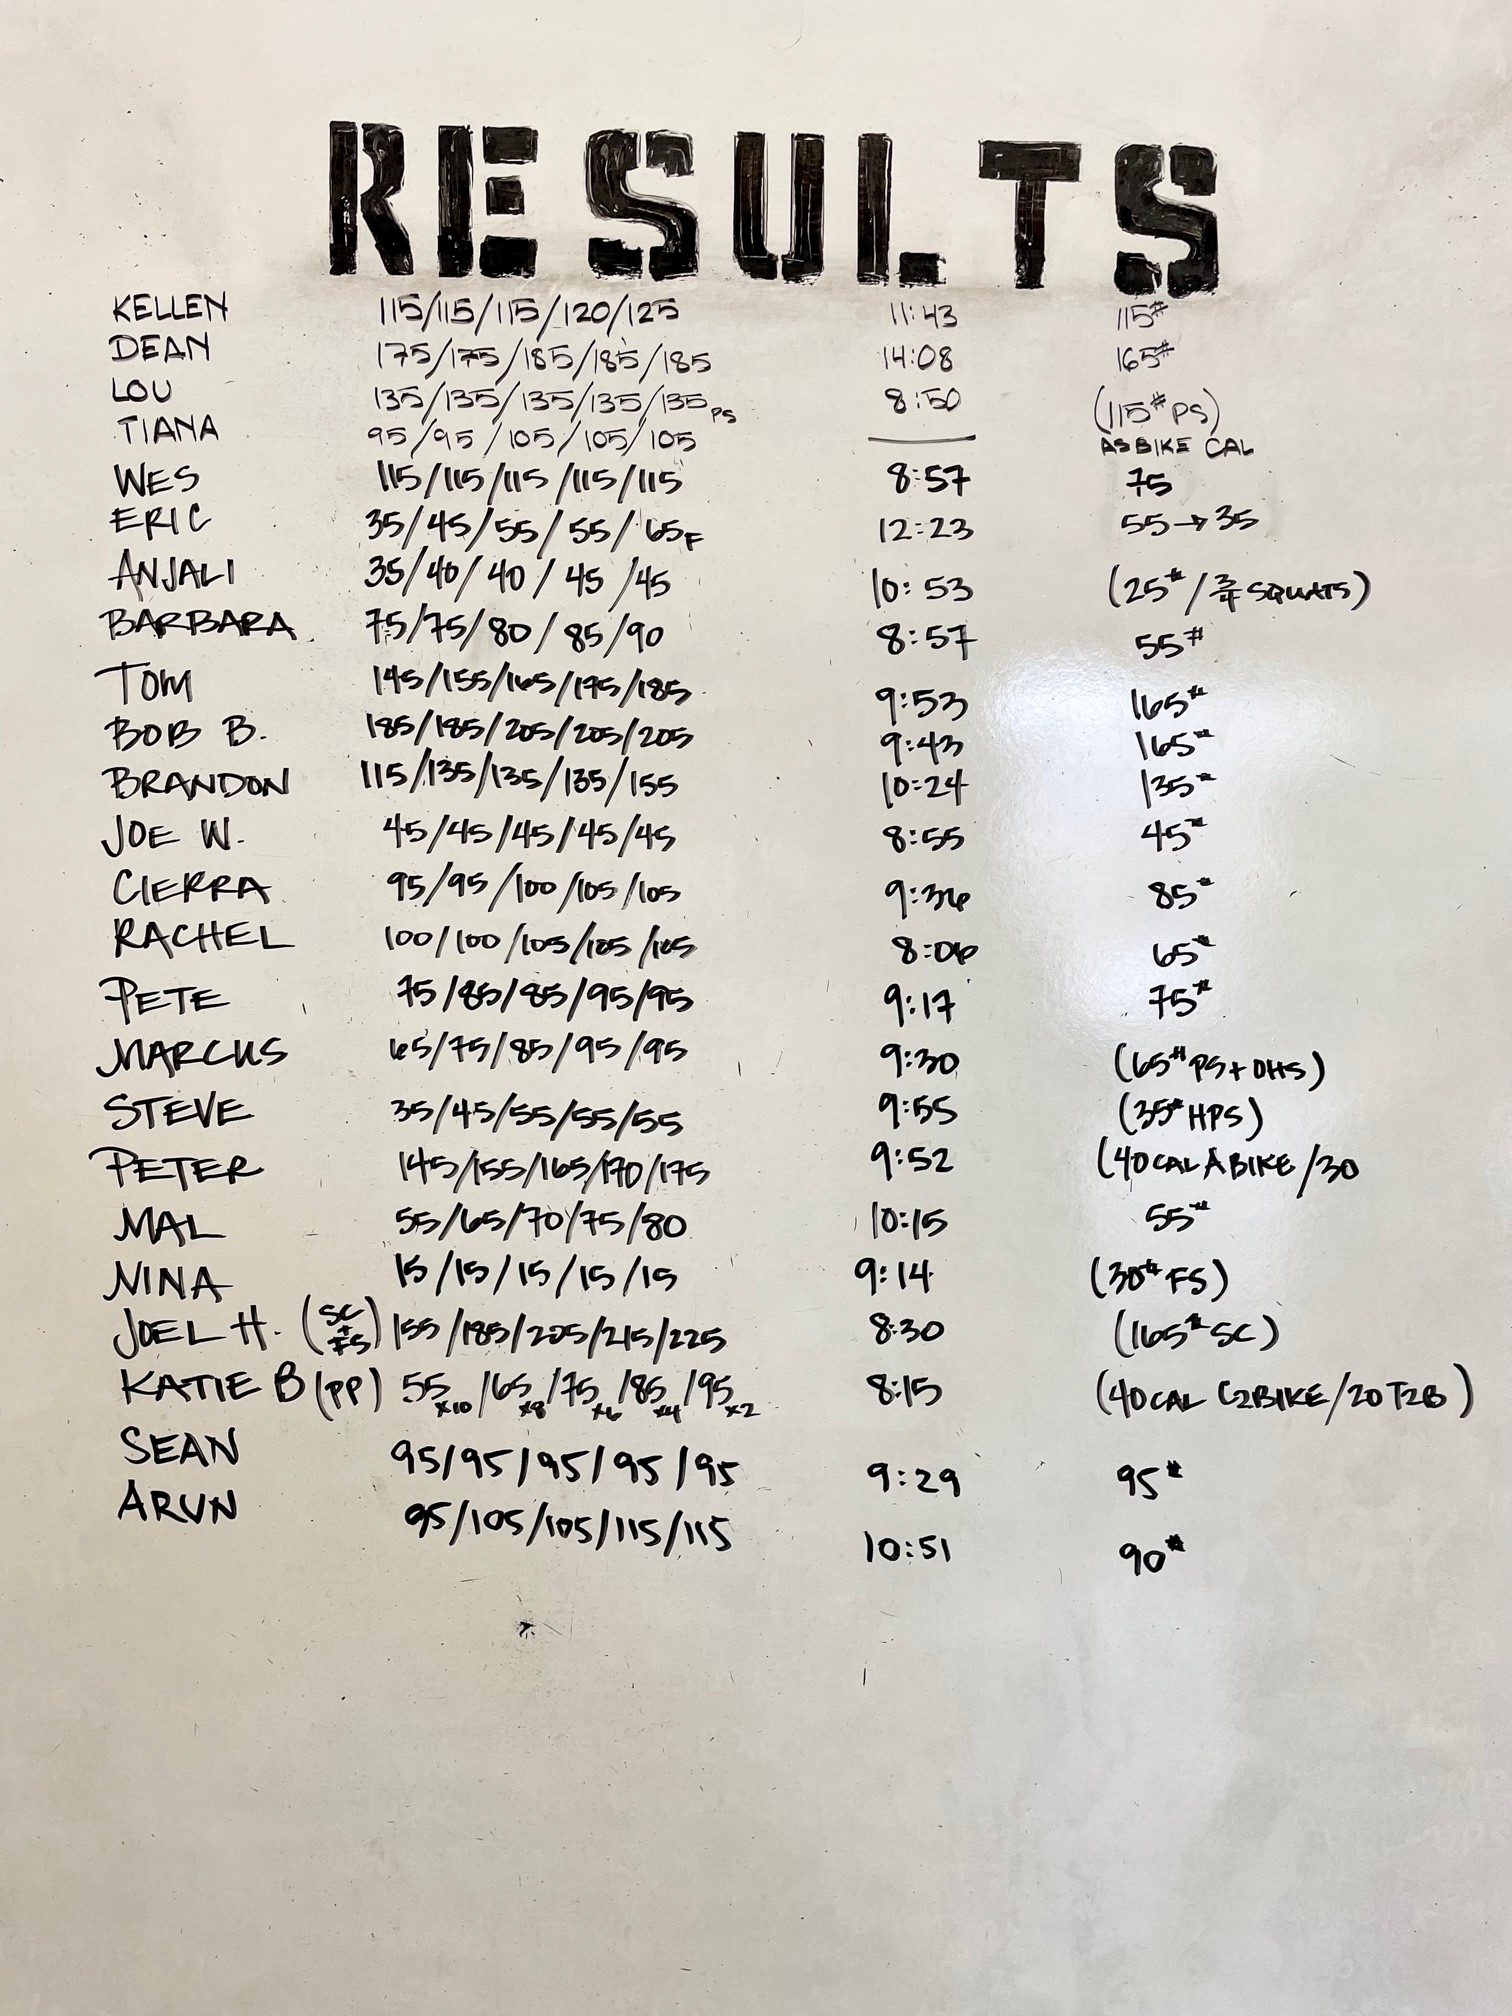 RESULTS
KELLEN 115/115/115/120/125 11:43 115#
DEAN 175/175/185/185/185 14:08 165#
LOU 135/135/135/135/135 PS 8:50 (115# PS)
TIANA 95/95/105/105/105 — AS BIKE CAL
WES 115/115/115/115/115 8:57 75
ERIC 35/45/55/55/65F 12:23 55→35
ANJALI 35/40/40/45/45 10:53 (25#/3/4 SQUATS)
BARBARA 75/75/80/85/90 8:57 55#
TOM 145/155/165/175/185 9:53 165#
BOB B. 185/185/205/205/205 9:43 165#
BRANDON 115/135/135/135/155 10:24 135#
JOE W. 45/45/45/45/45 8:55 45#
CIERRA 95/95/100/105/105 9:36 85#
RACHEL 100/100/105/105/105 8:06 65#
PETE 75/85/85/95/95 9:17 75#
MARCUS 65/75/85/95/95 9:30 (65# PS+OHS)
STEVE 35/45/55/55/55 9:55 (35# HPS)
PETER 145/155/165/170/175 9:52 (40 CAL A BIKE/30
MAL 55/65/70/75/80 10:15 55#
NINA 15/15/15/15/15 9:14 (30# FS)
JOEL H. (SC+FS) 155/185/205/215/225 8:30 (165# SC)
KATIE B (PP) 55x10/65x8/75x6/85x4/95x2 8:15 (40 CAL C2BIKE/20 T2B)
SEAN 95/95/95/95/95 9:29 95#
ARUN 95/105/105/115/115 10:51 90#